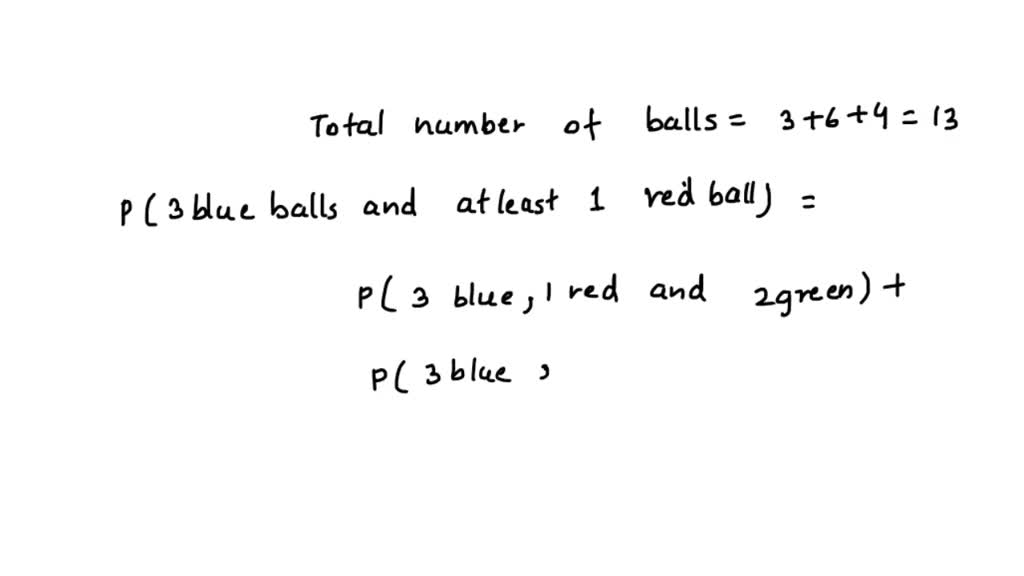 Total number of balls = 3+6+4 = 13
P( 3 blue balls and atleast 1 red ball) =
P( 3 blue, 1 red and 2green) +
P( 3 blue ,